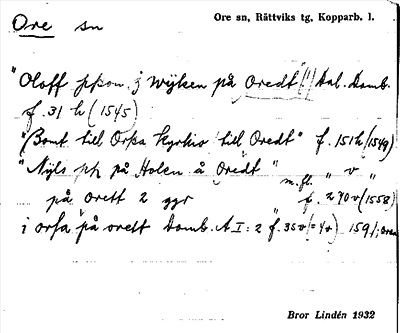 Ore sn
Ore sn, Rättviks tg, Kopparb. l.
"Oloff pson j Wijken på Oredt (!) Dal. Domb.
f. 31 h (1545)
"Bont till Orsa kyrkio till Oredt" f. 151 h (1549)
"Nyls på Holen å Oredt" m.fl. " v "
på orett 2 ggr f. 270 v (1558)
i orsa på orett Domb. A I: 2 f. 35 v (= 4v) 1591;
Bror Lindén 1932